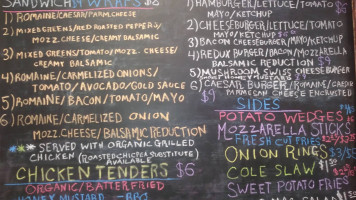 SANDWICH $4 WRAPS $8
1) ROMAINE/CAESAR/PARM. CHEESE
2) MIXED GREENS/RED ROASTED PEPPERS/
MOZZ. CHEESE/CREAMY BALSAMIC
3) MIXED GREENS/TOMATO/MOZZ. CHEESE/
CREAMY BALSAMIC
4) ROMAINE/CARMELIZED ONIONS/
TOMATO/AVOCADO/GOLD SAUCE
5) ROMAINE/BACON/TOMATO/MAYO
6) ROMAINE/CARMELIZED ONION
MOZZ. CHEESE/BALSAMIC REDUCTION
SERVED WITH ORGANIC GRILLED
CHICKEN (ROASTED CHICK SUBSTITUTE)
AVAILABLE
CHICKEN TENDERS $6
ORGANIC/BATTER FRIED
HONEY MUSTARD - BBQ
1) HAMBURGER/LETTUCE/TOMATO
MAYO/KETCHUP $5
2) CHEESEBURGER/LETTUCE/TOMATO
MAYO/KETCHUP $6
3) BACON CHEESEBURGER/MAYO/KETCHUP
4) REDUX BURGER/BACON/MOZZARELLA
BALSAMIC REDUCTION $9
5) MUSHROOM SWISS CHEESE BURGER
6) CAESAR BURGER/ROMAINE/CAESAR
$9 PARMESAN CHEESE ENCRUSTED
SIDES
POTATO WEDGES $4
MOZZARELLA STICKS
FRESH CUT FRIES
ONION RINGS $3/$5
COLE SLAW
SWEET POTATO FRIES